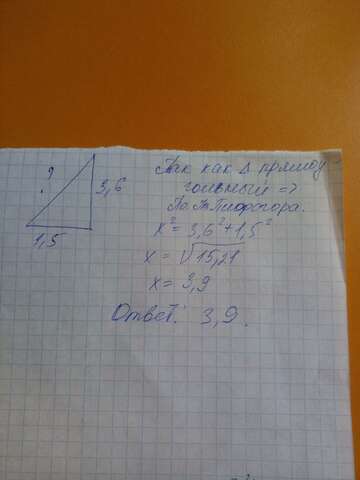 ?
3,6
1,5
Так как Δ прямоу
гольный =>
По т. Пифагора.
x² = 3,6² + 1,5²
x = √15,21
x = 3,9
Ответ: 3,9.